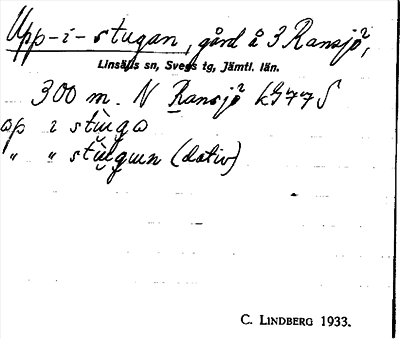 Upp-i-stugan, gård å 3 Ransjö,
Linsälls sn, Svegs tg, Jämtl. län.
300 m. N Ransjö k
op i stùga
" " stùgun (dativ)
C. LINDBERG 1933.